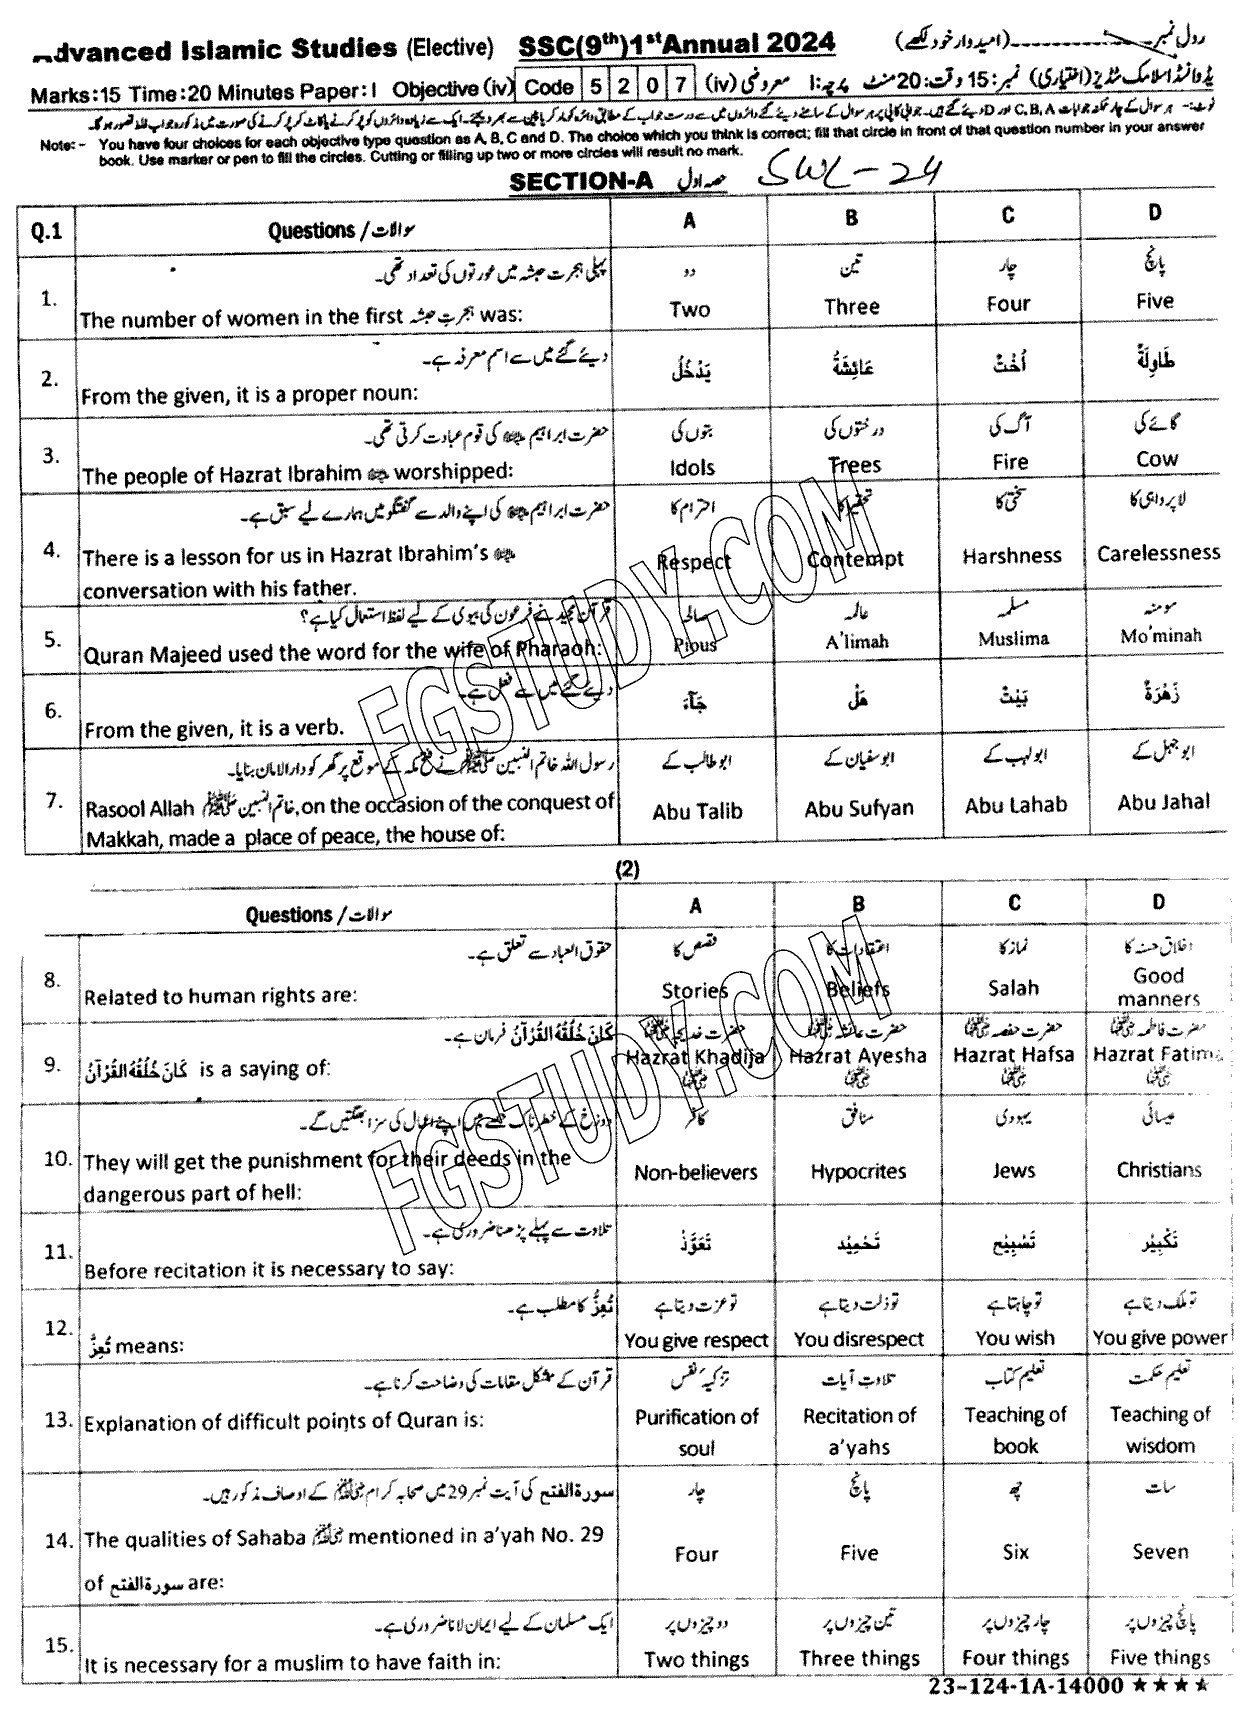 Advanced Islamic Studies (Elective) SSC(9th)1st Annual 2024 رول نمبر (امیدوار خود لکھے)
Marks:15 Time:20 Minutes Paper:I Objective (iv) Code 5 2 0 7 معروضی (iv) پرچہ: I وقت: 20 منٹ نمبر: 15 (اختیاری)
Note:- You have four choices for each objective type question as A, B, C and D. The choice which you think is correct; fill that circle in front of that question number in your answer
book. Use marker or pen to fill the circles. Cutting or filling up two or more circles will result no mark.
SECTION-A حصہ اول SWL-24
Q.1 Questions / سوالات A B C D
پہلی ہجرت حبشہ میں عورتوں کی تعداد تھی۔ دو تین چار پانچ
1. The number of women in the first ہجرتِ حبشہ was: Two Three Four Five
دیئے گئے میں سے اسم معرفہ ہے۔ يَدْخُلُ عَائِشَةُ اُخْتٌ طَاوِلَةٌ
2. From the given, it is a proper noun:
حضرت ابراہیم علیہ السلام کی قوم عبادت کرتی تھی۔ بتوں کی درختوں کی آگ کی گائے کی
3. The people of Hazrat Ibrahim worshipped: Idols Trees Fire Cow
حضرت ابراہیم کی اپنے والد سے گفتگو میں ہمارے لیے سبق ہے۔ احترام کا تحقیر کا سختی کا لاپرواہی کا
4. There is a lesson for us in Hazrat Ibrahim's Respect Contempt Harshness Carelessness
conversation with his father.
قرآن مجید نے فرعون کی بیوی کے لیے لفظ استعمال کیا ہے؟ صالحہ عالمہ مسلمہ مومنہ
5. Quran Majeed used the word for the wife of Pharaoh: Pious A'limah Muslima Mo'minah
دیئے گئے میں سے فعل ہے۔ جَآءَ هَلْ بَيْتٌ زَهْرَةٌ
6. From the given, it is a verb.
رسول اللہ خاتم النبیین ﷺ نے فتح مکہ کے موقع پر گھر کو دارالامان بنایا۔ ابوطالب کے ابوسفیان کے ابولہب کے ابوجہل کے
7. Rasool Allah خاتم النبیین ﷺ, on the occasion of the conquest of Abu Talib Abu Sufyan Abu Lahab Abu Jahal
Makkah, made a place of peace, the house of:
(2)
Questions / سوالات A B C D
حقوق العباد سے تعلق ہے۔ قصص کا اعتقادات کا نماز کا اخلاق حسنہ کا
8. Related to human rights are: Stories Beliefs Salah Good manners
كَانَ خُلُقُهُ الْقُرْآنُ فرمان ہے۔ حضرت خدیجہ حضرت عائشہ حضرت حفصہ حضرت فاطمہ
9. كَانَ خُلُقُهُ الْقُرْآنُ is a saying of: Hazrat Khadija Hazrat Ayesha Hazrat Hafsa Hazrat Fatima
دوزخ کے خطرناک حصے میں اپنے اعمال کی سزا بھگتیں گے۔ کافر منافق یہودی عیسائی
10. They will get the punishment for their deeds in the Non-believers Hypocrites Jews Christians
dangerous part of hell:
تلاوت سے پہلے پڑھنا ضروری ہے۔ تَعَوُّذْ تَحْمِيْد تَسْبِيْح تَكْبِيْر
11. Before recitation it is necessary to say:
تُعِزُّ کا مطلب ہے۔ تو عزت دیتا ہے تو ذلت دیتا ہے تو چاہتا ہے تو ملک دیتا ہے
12. تُعِزُّ means: You give respect You disrespect You wish You give power
قرآن کے مشکل مقامات کی وضاحت کرنا ہے۔ تزکیہ نفس تلاوتِ آیات تعلیم کتاب تعلیم حکمت
13. Explanation of difficult points of Quran is: Purification of soul Recitation of a'yahs Teaching of book Teaching of wisdom
سورۃ الفتح کی آیت نمبر 29 میں صحابہ کرام کے اوصاف مذکور ہیں۔ چار پانچ چھ سات
14. The qualities of Sahaba mentioned in a'yah No. 29 Four Five Six Seven
of سورۃ الفتح are:
ایک مسلمان کے لیے ایمان لانا ضروری ہے۔ دو چیزوں پر تین چیزوں پر چار چیزوں پر پانچ چیزوں پر
15. It is necessary for a muslim to have faith in: Two things Three things Four things Five things
23-124-1A-14000 ★★★★
FGSTUDY.COM
FGSTUDY.COM